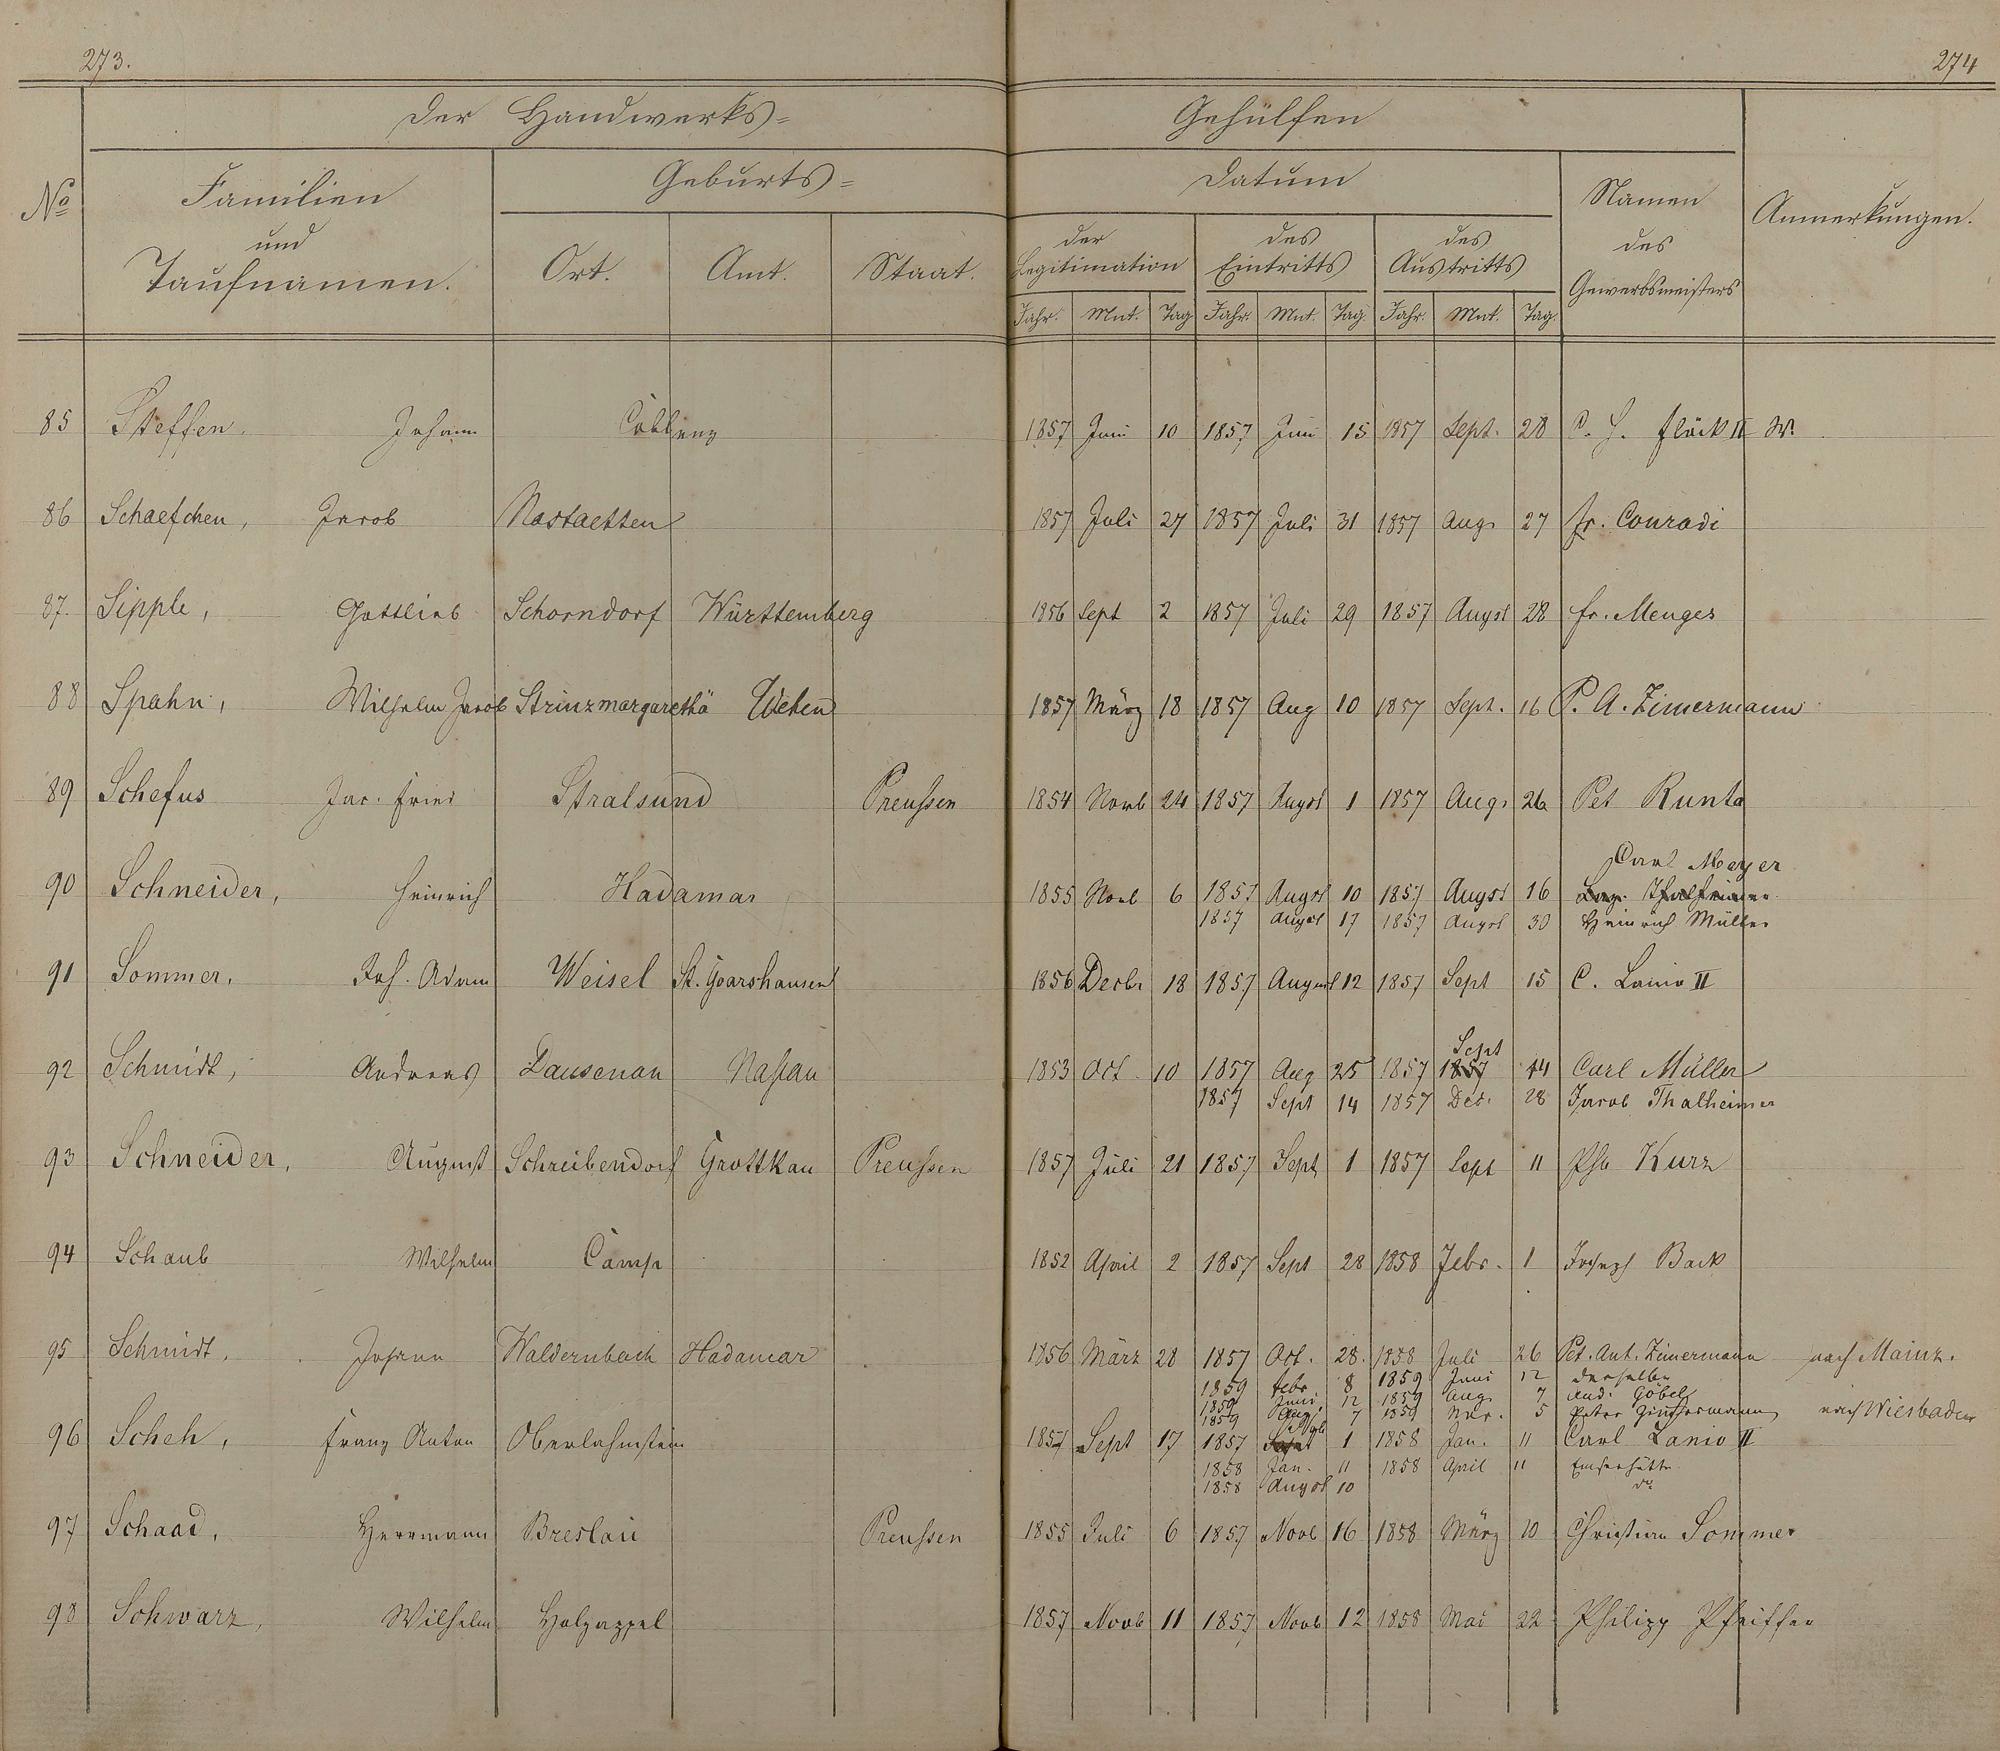 273.
274
Der Handwerks=
Gehülfen
No
Familien
und
Taufnamen.
Geburts=
Ort.
Amt.
Staat.
Datum
der
Legitimation
des
Eintritts
des
Austritts
Jahr. Mnt. Tag Jahr. Mnt. Tag. Jahr. Mnt. Tag.
Namen
des
Gewerbsmeisters
Anmerkungen.
85 Steffen. Johann Coblenz 1857 Juni 10 1857 Juni 15 1857 Sept. 28 C. H. Flöck II W.
86 Schaefchen, Jacob Nastaetten 1857 Juli 27 1857 Juli 31 1857 Aug. 27 Fr. Conradi
87. Sipple, Gottlieb Schorndorf Württemberg 1856 Sept 2 1857 Juli 29 1857 Augst 28 Fr. Menges
88 Spahn, Wilhelm Jacob Strinzmargarethä Wehen 1857 März 18 1857 Aug 10 1857 Sept. 16 P. A. Zimermann
89 Schefus Jac. Fried Stralsund Preussen 1854 Novb 24 1857 Augst 1 1857 Aug. 26 Pet Runta
Carl Meyer
90 Schneider, Heinrich Hadamar 1855 Novb 6 1857 Augst 10 1857 Augst 16
1857 Augst 17 1857 Augst 30 Heinrich Müller
91 Sommer, Joh. Adam Weisel St. Goarshausen 1856 Decbr 18 1857 August 12 1857 Sept 15 C. Lanio II
Sept
92 Schmidt, Andreas Dausenau Nassau 1853 Oct. 10 1857 Aug 25 1857 1857 14 Carl Müller
1857 Sept 14 1857 Dec. 28 Jacob Thalheimer
93 Schneider, August Schreibendorf Grottkau Preussen 1857 Juli 21 1857 Sept 1 1857 Sept 11 Phil Kurz
94 Schaub Wilhelm Camp 1852 April 2 1857 Sept 28 1858 Febr. 1 Joseph Back
95 Schmidt, Johann Waldernbach Hadamar 1856 März 28 1857 Oct. 28. 1858 Juli 26 Pet. Ant. Zimermann nach Mainz.
1859 Febr. 8 1859 Juni 12 derselbe
1859 Juni, 12 1859 Aug. 7 And. Göbel
1859 Aug. 7 1859 Nov. 5 Peter Zimmermann nach Wiesbaden
96 Scheh, Franz Anton Oberlahnstein 1857 Sept 17 1857 1 1858 Jan. 11 Carl Lanio II
1858 Jan. 11 1858 April 11 Emserhütte
1858 Augst 10 do
97 Schaad, Herrmann Breslau Preussen 1855 Juli 6 1857 Novb 16 1858 März 10 Christian Sommer
98 Schwarz, Wilhelm Holzappel 1857 Novb 11 1857 Novb 12 1858 Mai 22 Philipp Pfeiffer